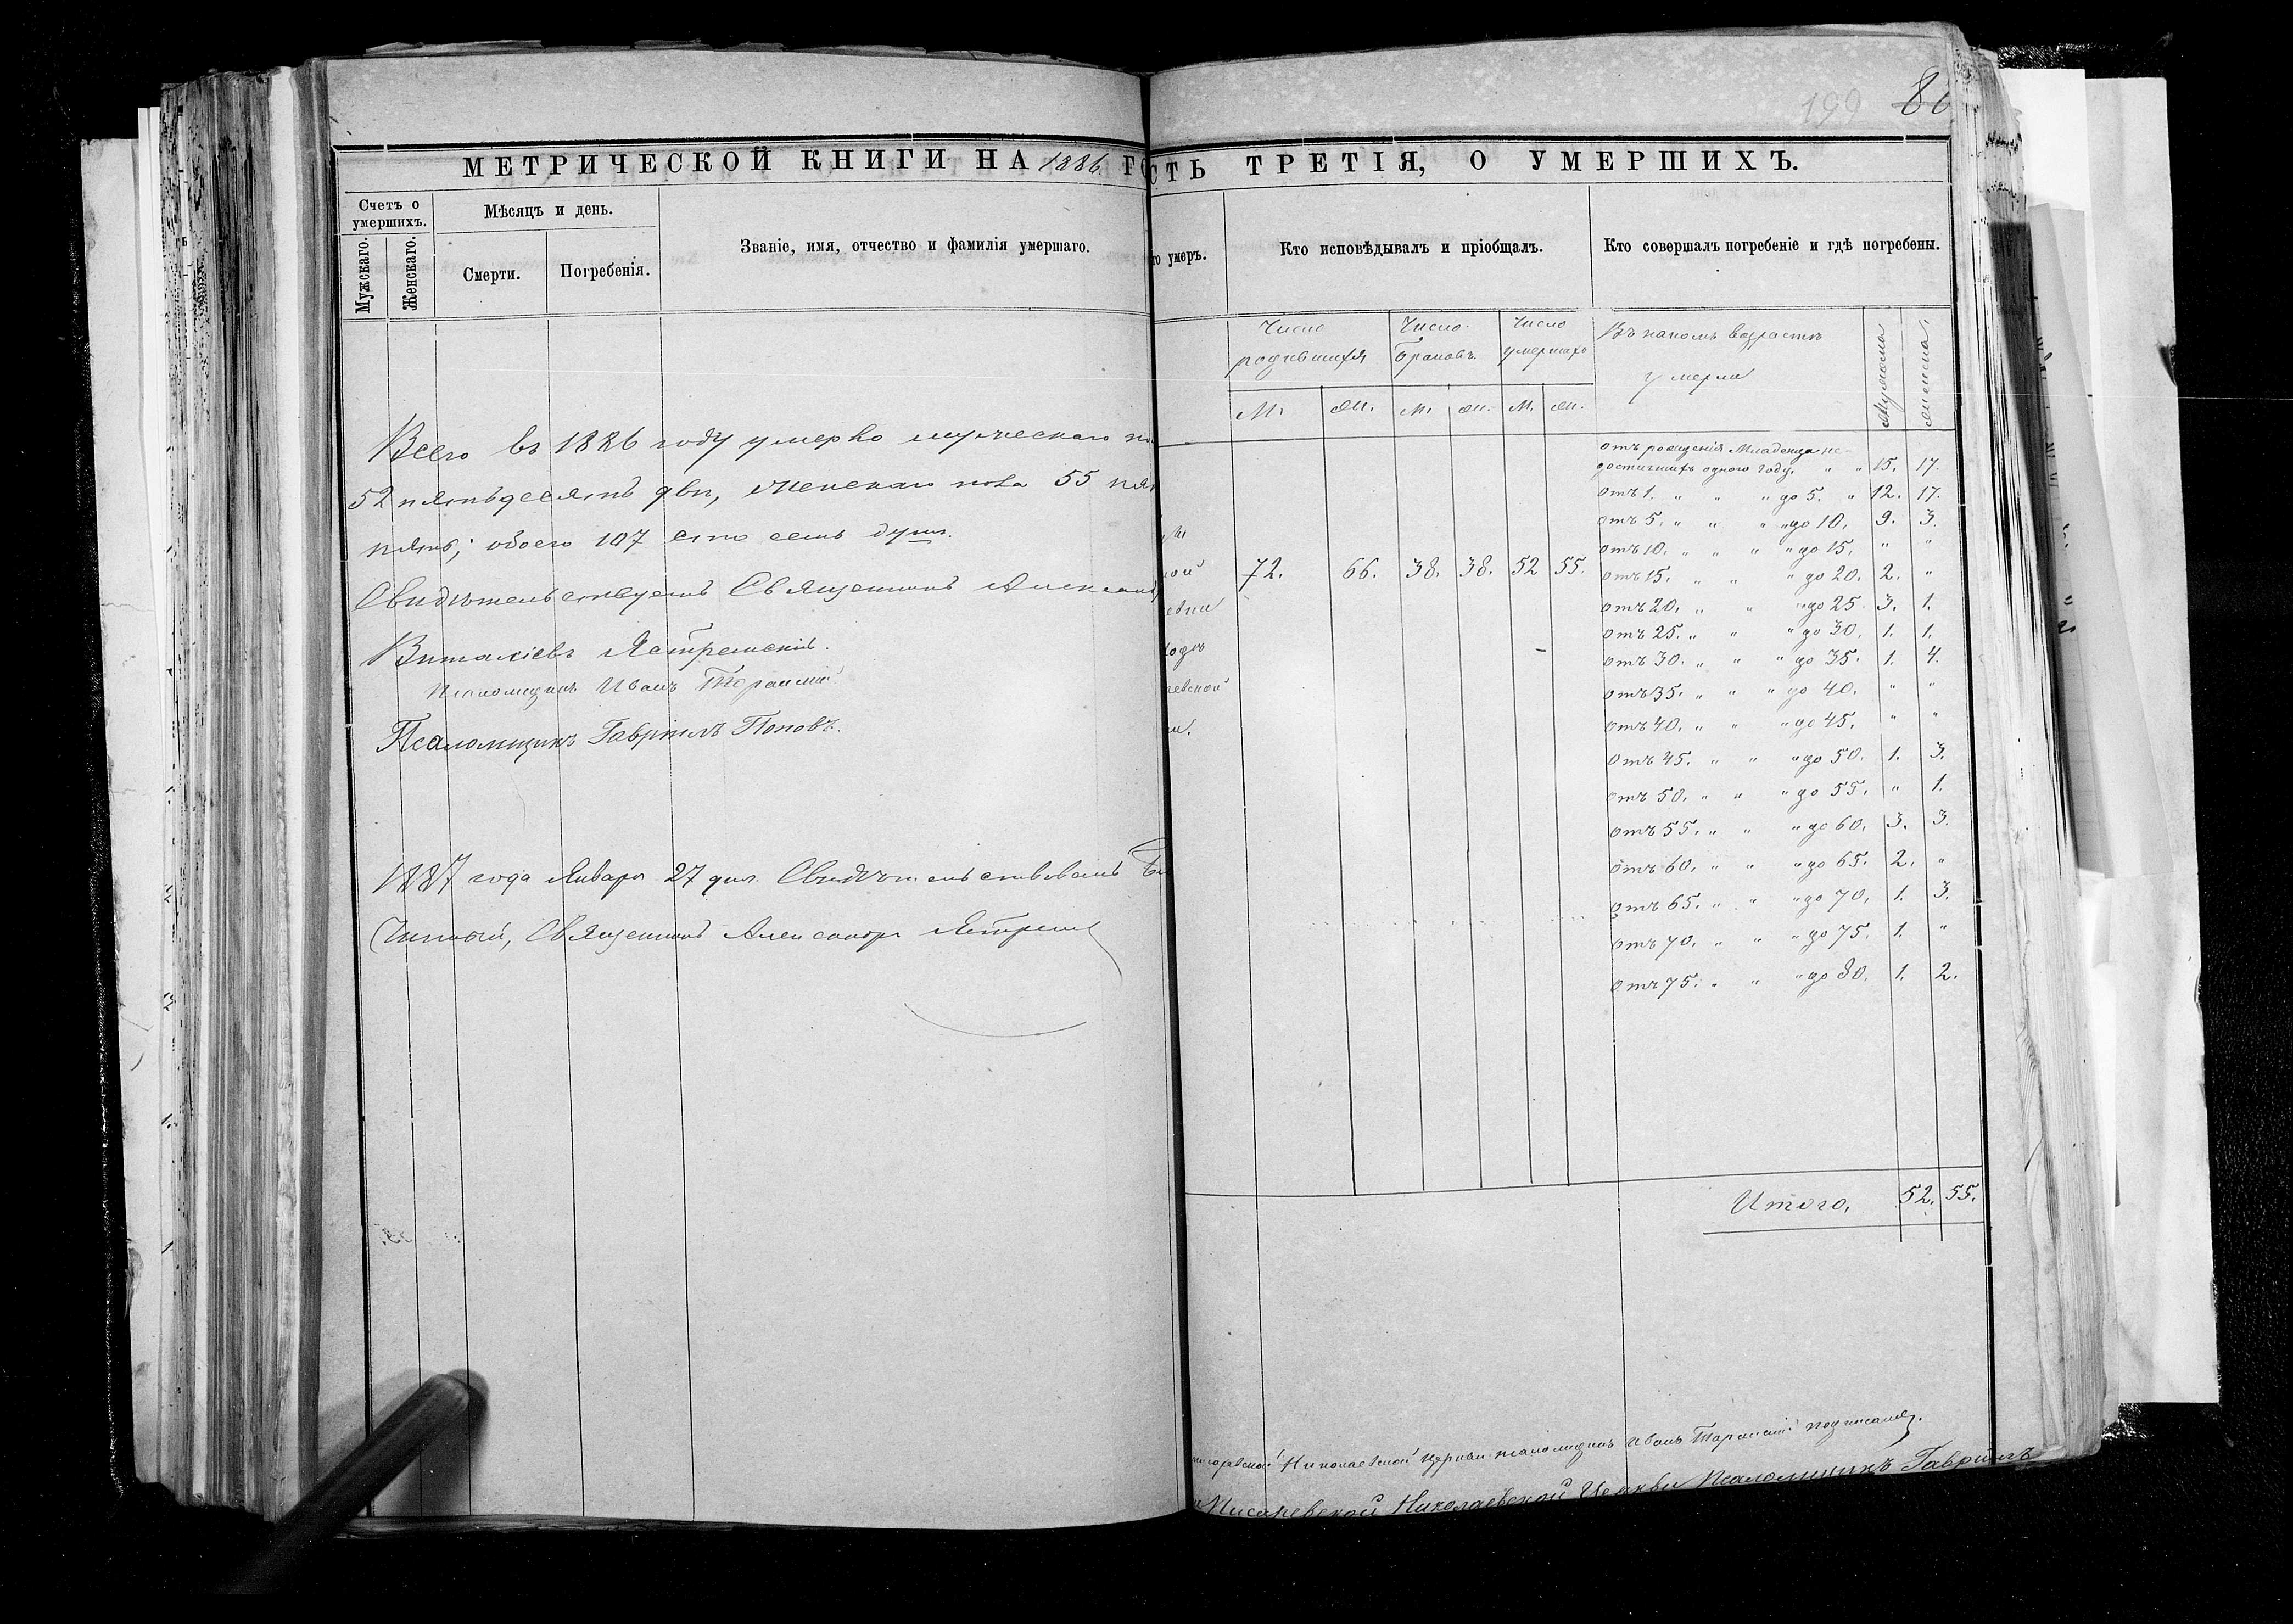 МЕТРИЧЕСКОЙ КНИГИ НА 1886 ГО
Счетъ о умершихъ.
Мужскаго.
Женскаго.
Мѣсяцъ и день.
Смерти.
Погребенія.
Званіе, имя, отчество и фамилія умершаго.
Всего въ 1886 году умерло мужескаго по
52 пятьдесятъ два, женскаго пола 55 пят
пять; обоего 107 сто семь душъ.
Свидѣтельствуемъ Священникъ Александ
Виталіевъ Ястремскій.
Псаломщикъ Иванъ
Псаломщикъ Гавріилъ Поповъ.
1887 года Января 27 дня Свидѣтельствовалъ Бла
чинный, Священникъ Александръ Ястрем
199 86
СТЬ ТРЕТІЯ, О УМЕРШИХЪ.
го умеръ.
Кто исповѣдывалъ и пріобщалъ.
Кто совершалъ погребеніе и гдѣ погребены.
Число родившихся
Число браковъ
Число умершихъ
Въ какомъ возрастѣ
умерли
Мужеска
Женска
М. Ж. М. Ж. М. Ж.
72. 66. 38. 38. 52 55.
отъ рожденія Младенца не-
достигшихъ одного году. " " 15. 17.
Отъ 1. " " " до 5. " 12. 17.
Отъ 5. " " " до 10. 9. 3.
Отъ 10. " " " до 15. " "
Отъ 15. " " " до 20. 2. "
Отъ 20. " " " до 25. 3. 1.
Отъ 25. " " " до 30. 1. 1.
Отъ 30. " " " до 35. 1. 4.
Отъ 35. " " " до 40. " "
Отъ 40. " " " до 45. " "
Отъ 45. " " " до 50. 1. 3.
Отъ 50. " " " до 55. " 1.
Отъ 55. " " " до 60. 3. 3.
Отъ 60. " " " до 65. 2. "
Отъ 65. " " " до 70. 1. 3.
Отъ 70. " " " до 75. 1. "
Отъ 75. " " " до 80. 1. 2.
Итого. 52. 55.
Николаевской церкви псаломщикъ Иванъ подписался.
Писаревской Николаевской Церкви Псаломщикъ Гавріилъ